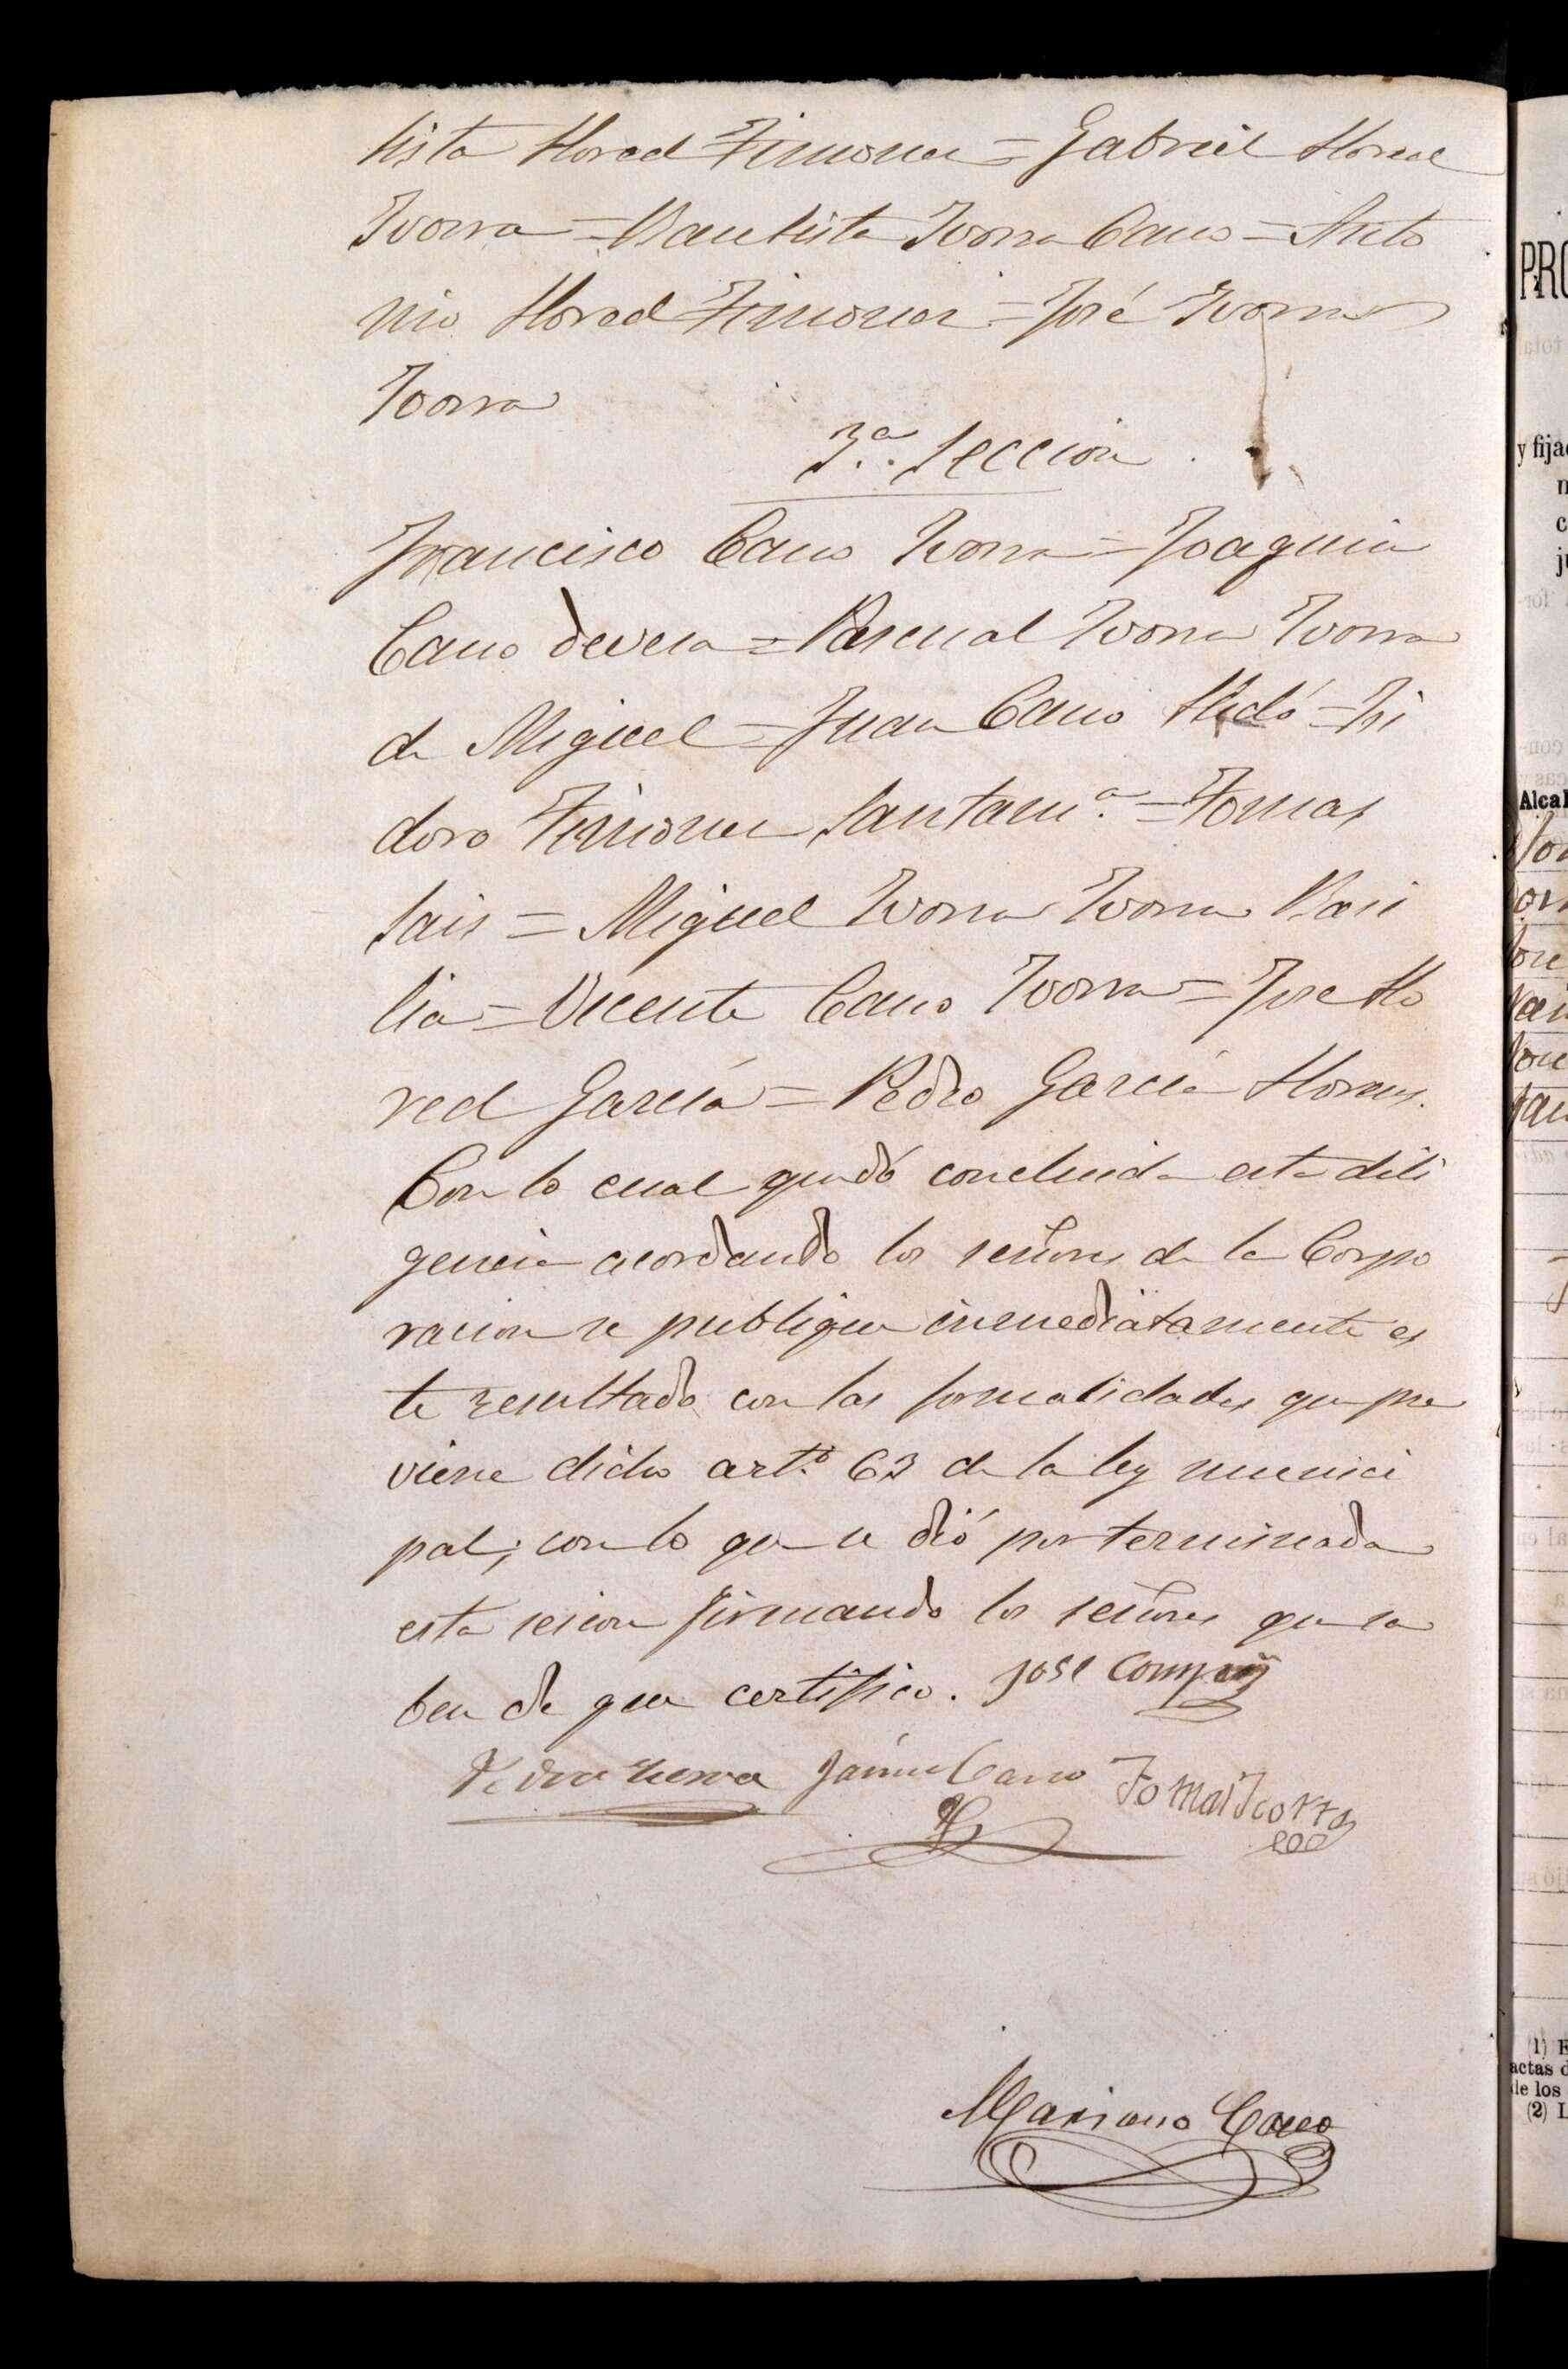 tista Llored Ximenez = Gabriel Llored
Ivorra = Bautista Ivorra Cano = Anto
nio Llored Ximenez = José Ivorra
Ivorra
3.ª Seccion
Francisco Cano Ivorra = Joaquin
Cano Devesa = Pascual Ivorra Ivorra
de Miguel = Juan Cano = Isi
doro Santam.ª = Tomas
Sais = Miguel Ivorra Ivorra Basi
lia = Vicente Cano Ivorra = Jose Llo
red García = Pedro García Llorens.
Con lo cual quedó concluida esta dili
gencia acordando los señores de la Corpo
racion se publique inmediatamente es
te resultado con las formalidades que pre
viene dicho art.º 63 de la ley munici
pal; con lo que se dió por terminada
esta sesion firmando los señores que sa
ben de que certifico. Jose Company
Jaime Cano Tomas Ivorra
Mariano Cano
PRO
y fija
Alcal
(1) E
actas d
de los
(2) L